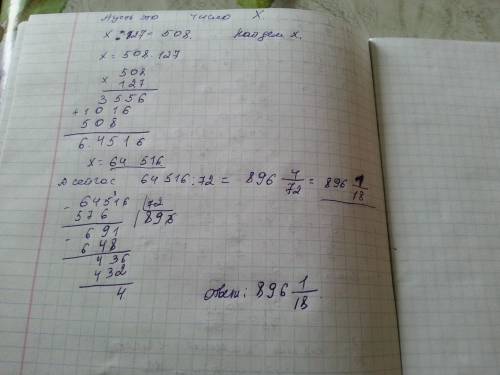 Пусть это число X.
x : 127 = 508. Найдем x.
x = 508 · 127
x 508
127
3556
+ 1016
508
6.4516
x = 64 516
А сейчас 64516 : 72 = 896 4/72 = 896 1/18
- 64516 | 72
576 | 896
- 691
648
436
432
4
Ответ: 896 1/18.